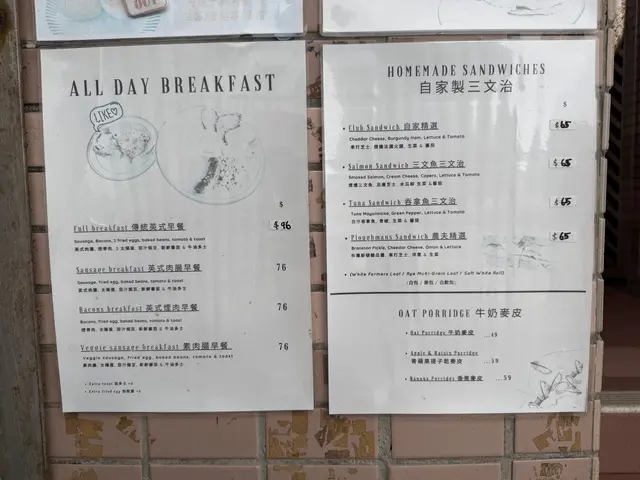 ALL DAY BREAKFAST
LIKE♡
$
Full breakfast 傳統英式早餐 $96
Sausage, Bacon, 2 fried eggs, baked beans, tomato & toast
Sausage breakfast 英式肉腸早餐 76
Sausage, fried egg, baked beans, tomato & toast
Bacons breakfast 英式煙肉早餐 76
Bacons, fried egg, baked beans, tomato & toast
Veggie sausage breakfast 素肉腸早餐 76
Veggie sausage, fried egg, baked beans, tomato & toast
• Extra toast
• Extra fried egg
HOMEMADE SANDWICHES
自家製三文治
$
• Club Sandwich 自家精選 $65
Cheddar Cheese, Burgundy Ham, Lettuce & Tomato
• Salmon Sandwich 三文魚三文治 $65
Smoked Salmon, Cream Cheese, Capers, Lettuce & Tomato
• Tuna Sandwich 吞拿魚三文治 $65
Tuna Mayonnaise, Green Pepper, Lettuce & Tomato
• Ploughmans Sandwich 農夫精選 $65
Branston Pickle, Cheedar Cheese, Onion & Lettuce
• (White Farmers Loaf / Rye Multi-Grain Loaf / Soft White Roll)
OAT PORRIDGE 牛奶麥皮
• Oat Porridge 牛奶麥皮 ...49
• Apple & Raisin Porridge
青蘋果提子乾麥皮 ...59
• Banana Porridge 香蕉麥皮 ...59